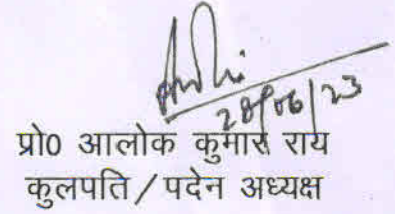 28/06/23
प्रो0 आलोक कुमार राय
कुलपति / पदेन अध्यक्ष